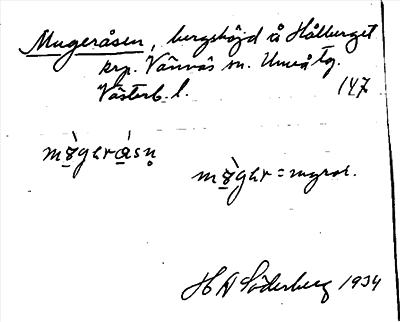 Mugeråsen, bergshöjd å Hålberget
krp. Vännäs sn. Umeå tg.
Västerb. l. 147
mò̱gərá̱sn̥
mò̱gər = myror.
H A Söderberg 1934